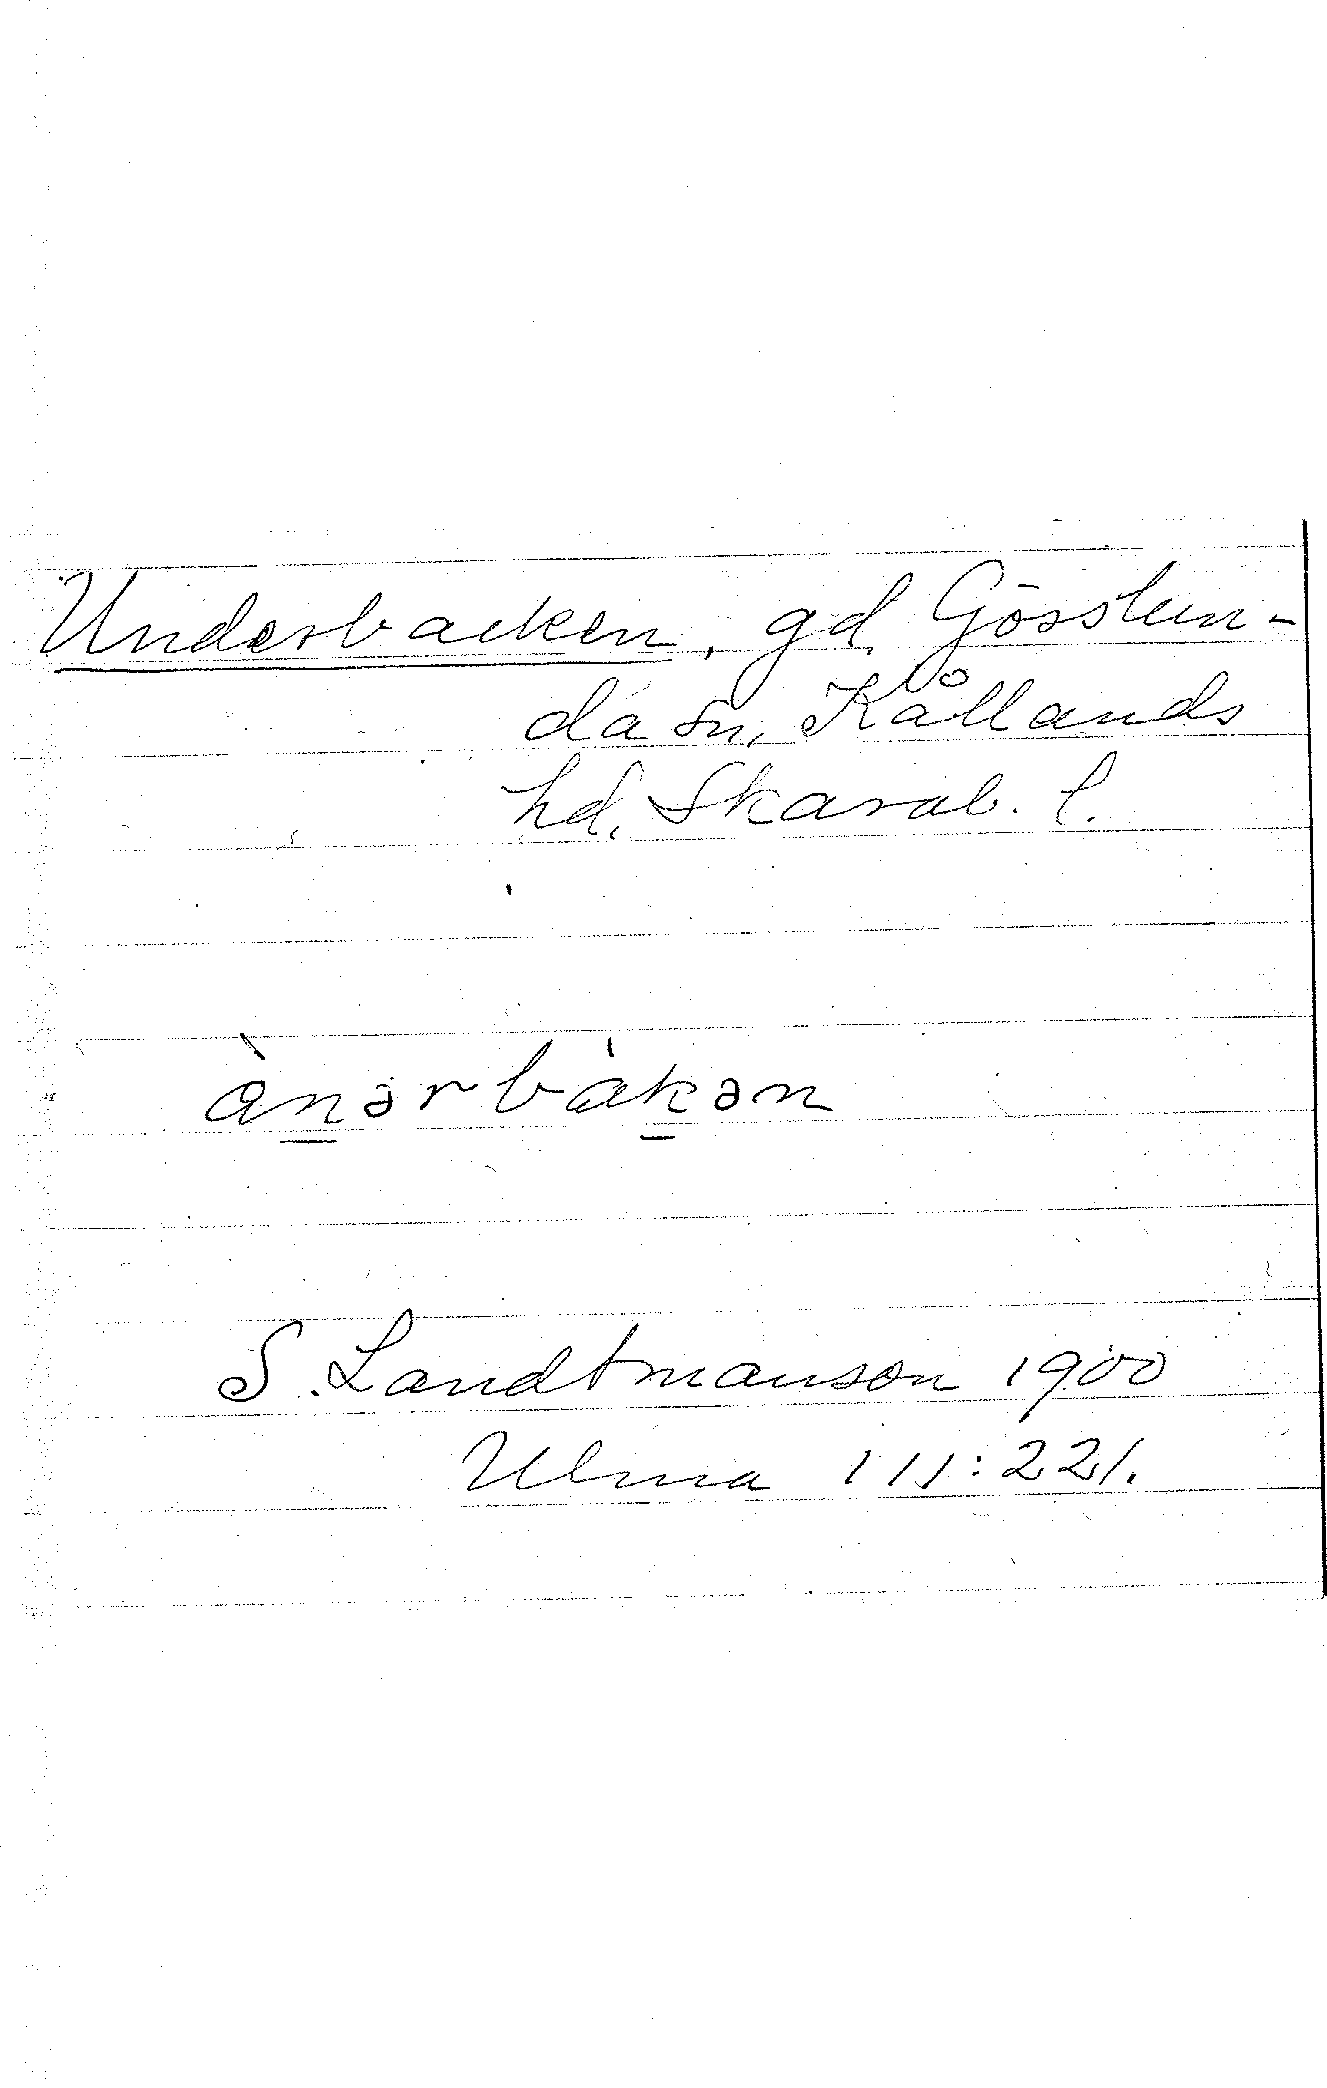 Underbacken, gd, Gösslun-
da sn, Kållands
hd, Skarab. l.
ànərbákən
S. Landtmanson 1900
Ulma 111:221.